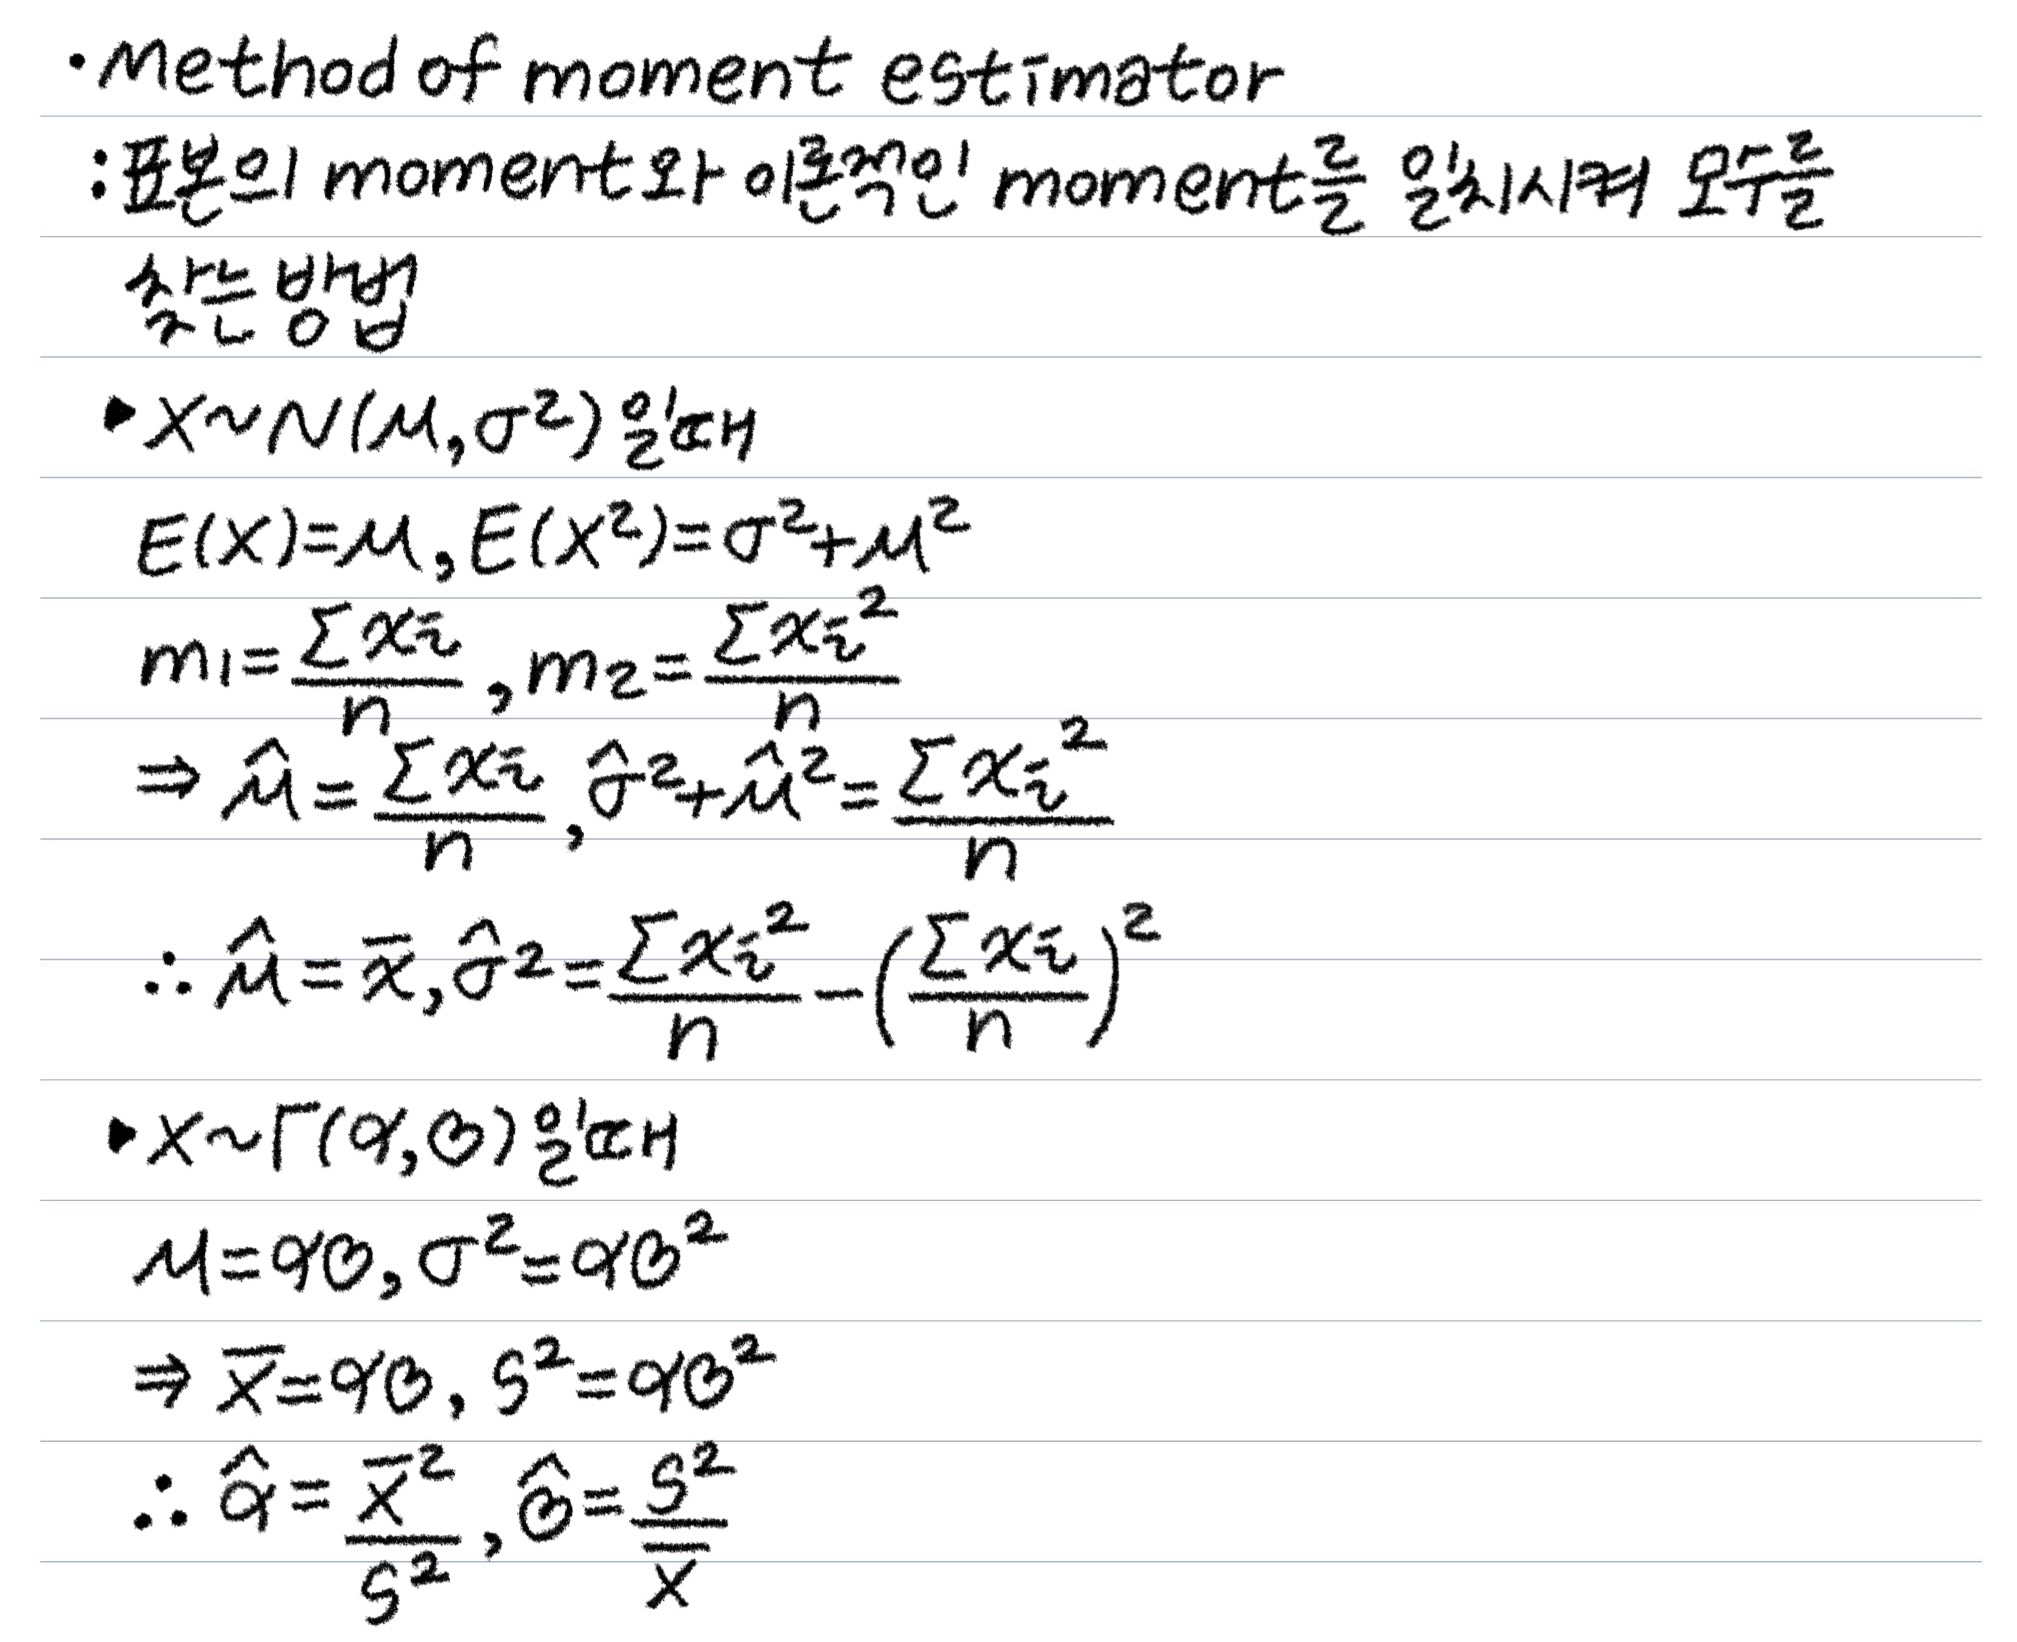 · Method of moment estimator
: 표본의 moment와 이론적인 moment를 일치시켜 모수를
찾는 방법
▸ X~N(μ,σ²)일때
E(X)=μ, E(X²)=σ²+μ²
m₁=Σxᵢ/n, m₂=Σxᵢ²/n
⇒ μ̂=Σxᵢ/n, σ̂²+μ̂²=Σxᵢ²/n
∴ μ̂=x̄, σ̂²=Σxᵢ²/n-(Σxᵢ/n)²
▸ X~Γ(α,β)일때
μ=αβ, σ²=αβ²
⇒ X̄=αβ, S²=αβ²
∴ α̂=X̄²/S², β̂=S²/X̄